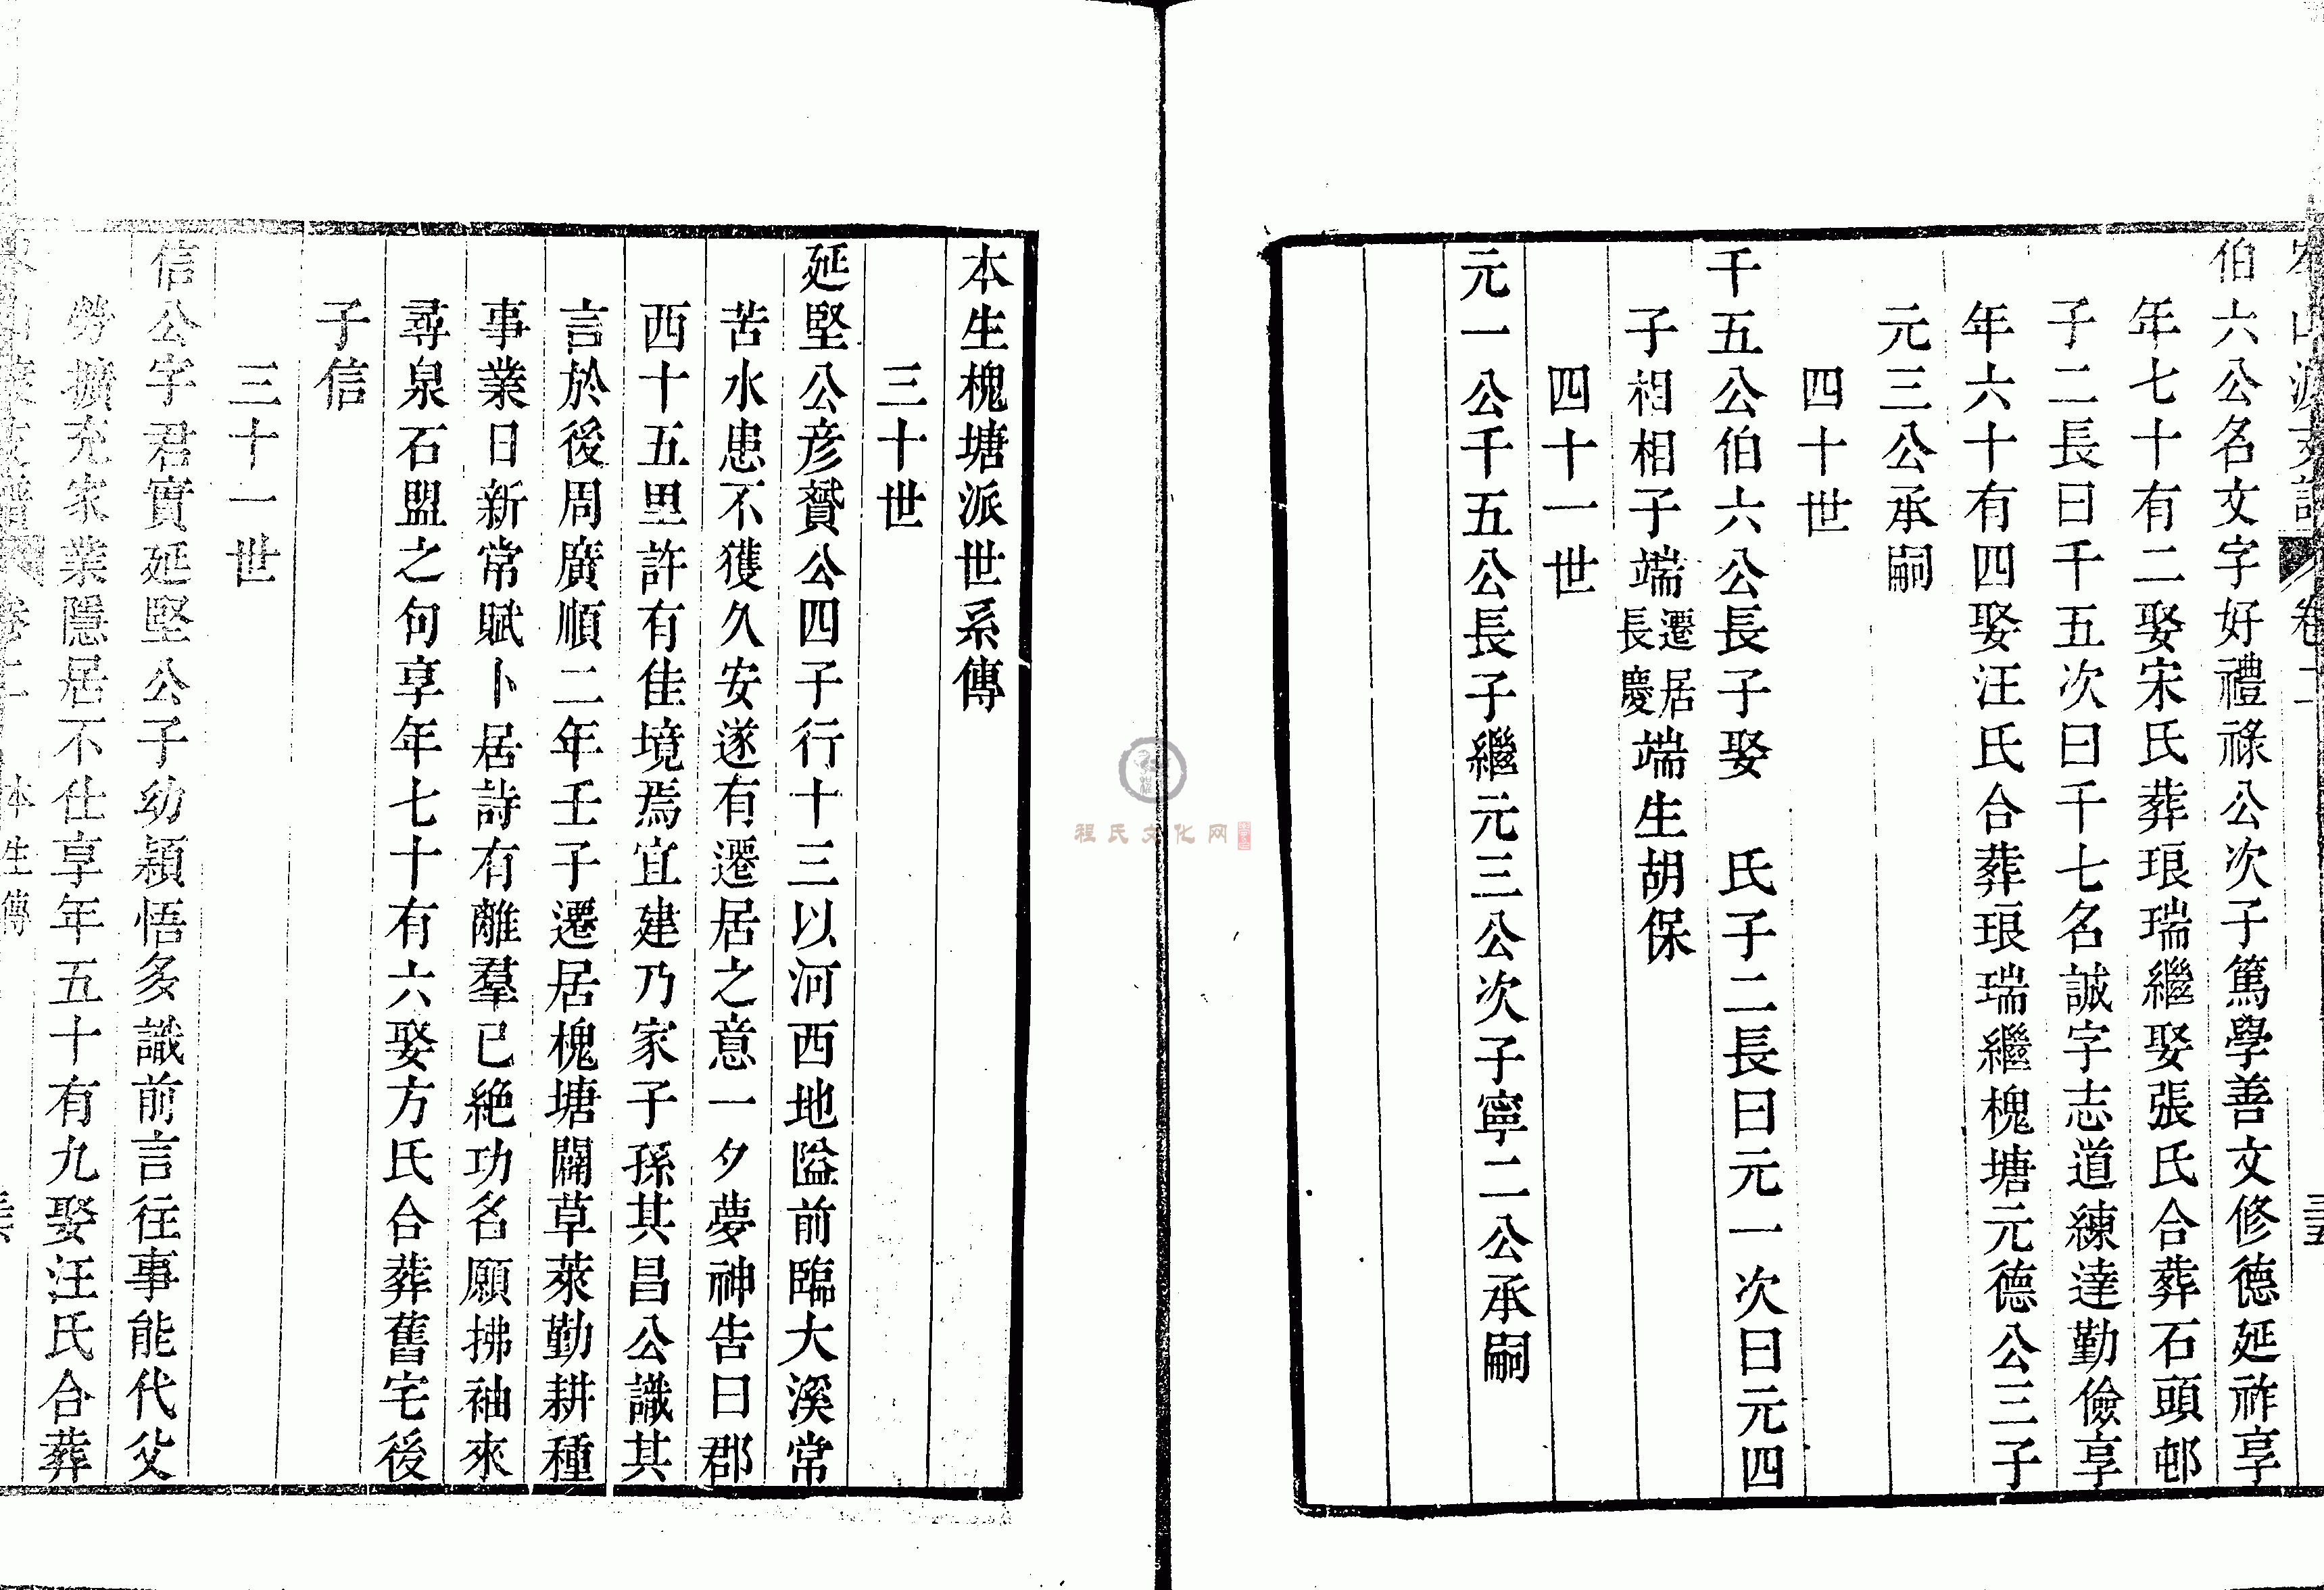 伯六公名文字好禮祿公次子篤學善文修德延祚享
年七十有二娶宋氏葬琅瑞繼娶張氏合葬石頭邨
子二長曰千五次曰千七名誠字志道練達勤儉享
年六十有四娶汪氏合葬琅瑞繼槐塘元德公三子
元三公承嗣
四十世
千五公伯六公長子娶　氏子二長曰元一次曰元四
子相相子端遷居長慶端生胡保
四十一世
元一公千五公長子繼元三公次子寧二公承嗣
本生槐塘派世系傳
三十世
延堅公彦贇公四子行十三以河西地隘前臨大溪常
苦水患不獲久安遂有遷居之意一夕夢神告曰郡
西十五里許有佳境焉宜建乃家子孫其昌公識其
言於後周廣順二年壬子遷居槐塘闢草萊勤耕種
事業日新常賦卜居詩有離羣已絶功名願拂袖來
尋泉石盟之句享年七十有六娶方氏合葬舊宅後
子信
三十一世
信公字君實延堅公子幼穎悟多識前言往事能代父
勞擴充家業隱居不仕享年五十有九娶汪氏合葬
卷二　本生傳
程氏文化网